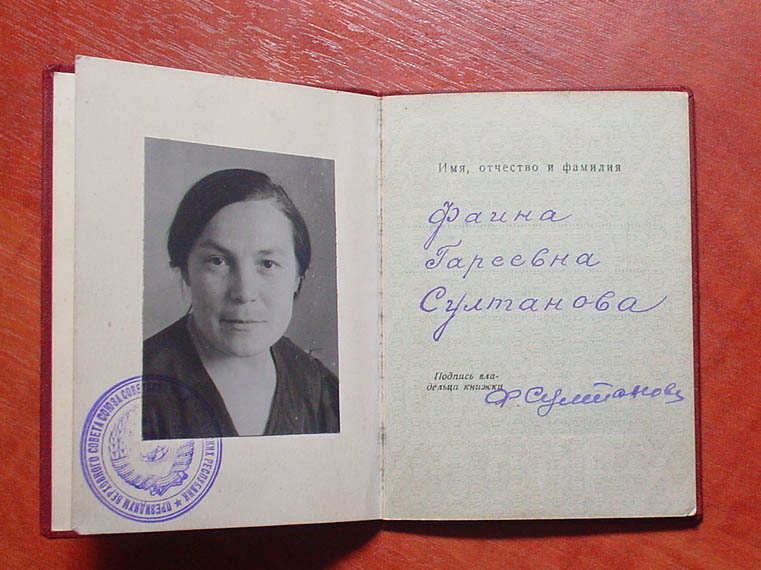 ПРЕЗИДИУМ ВЕРХОВНОГО СОВЕТА СОЮЗА СОВЕТСКИХ РЕСПУБЛИК
Имя, отчество и фамилия
Фаина
Гареевна
Султанова
Подпись вла-
дельца книжки
Ф Султанова